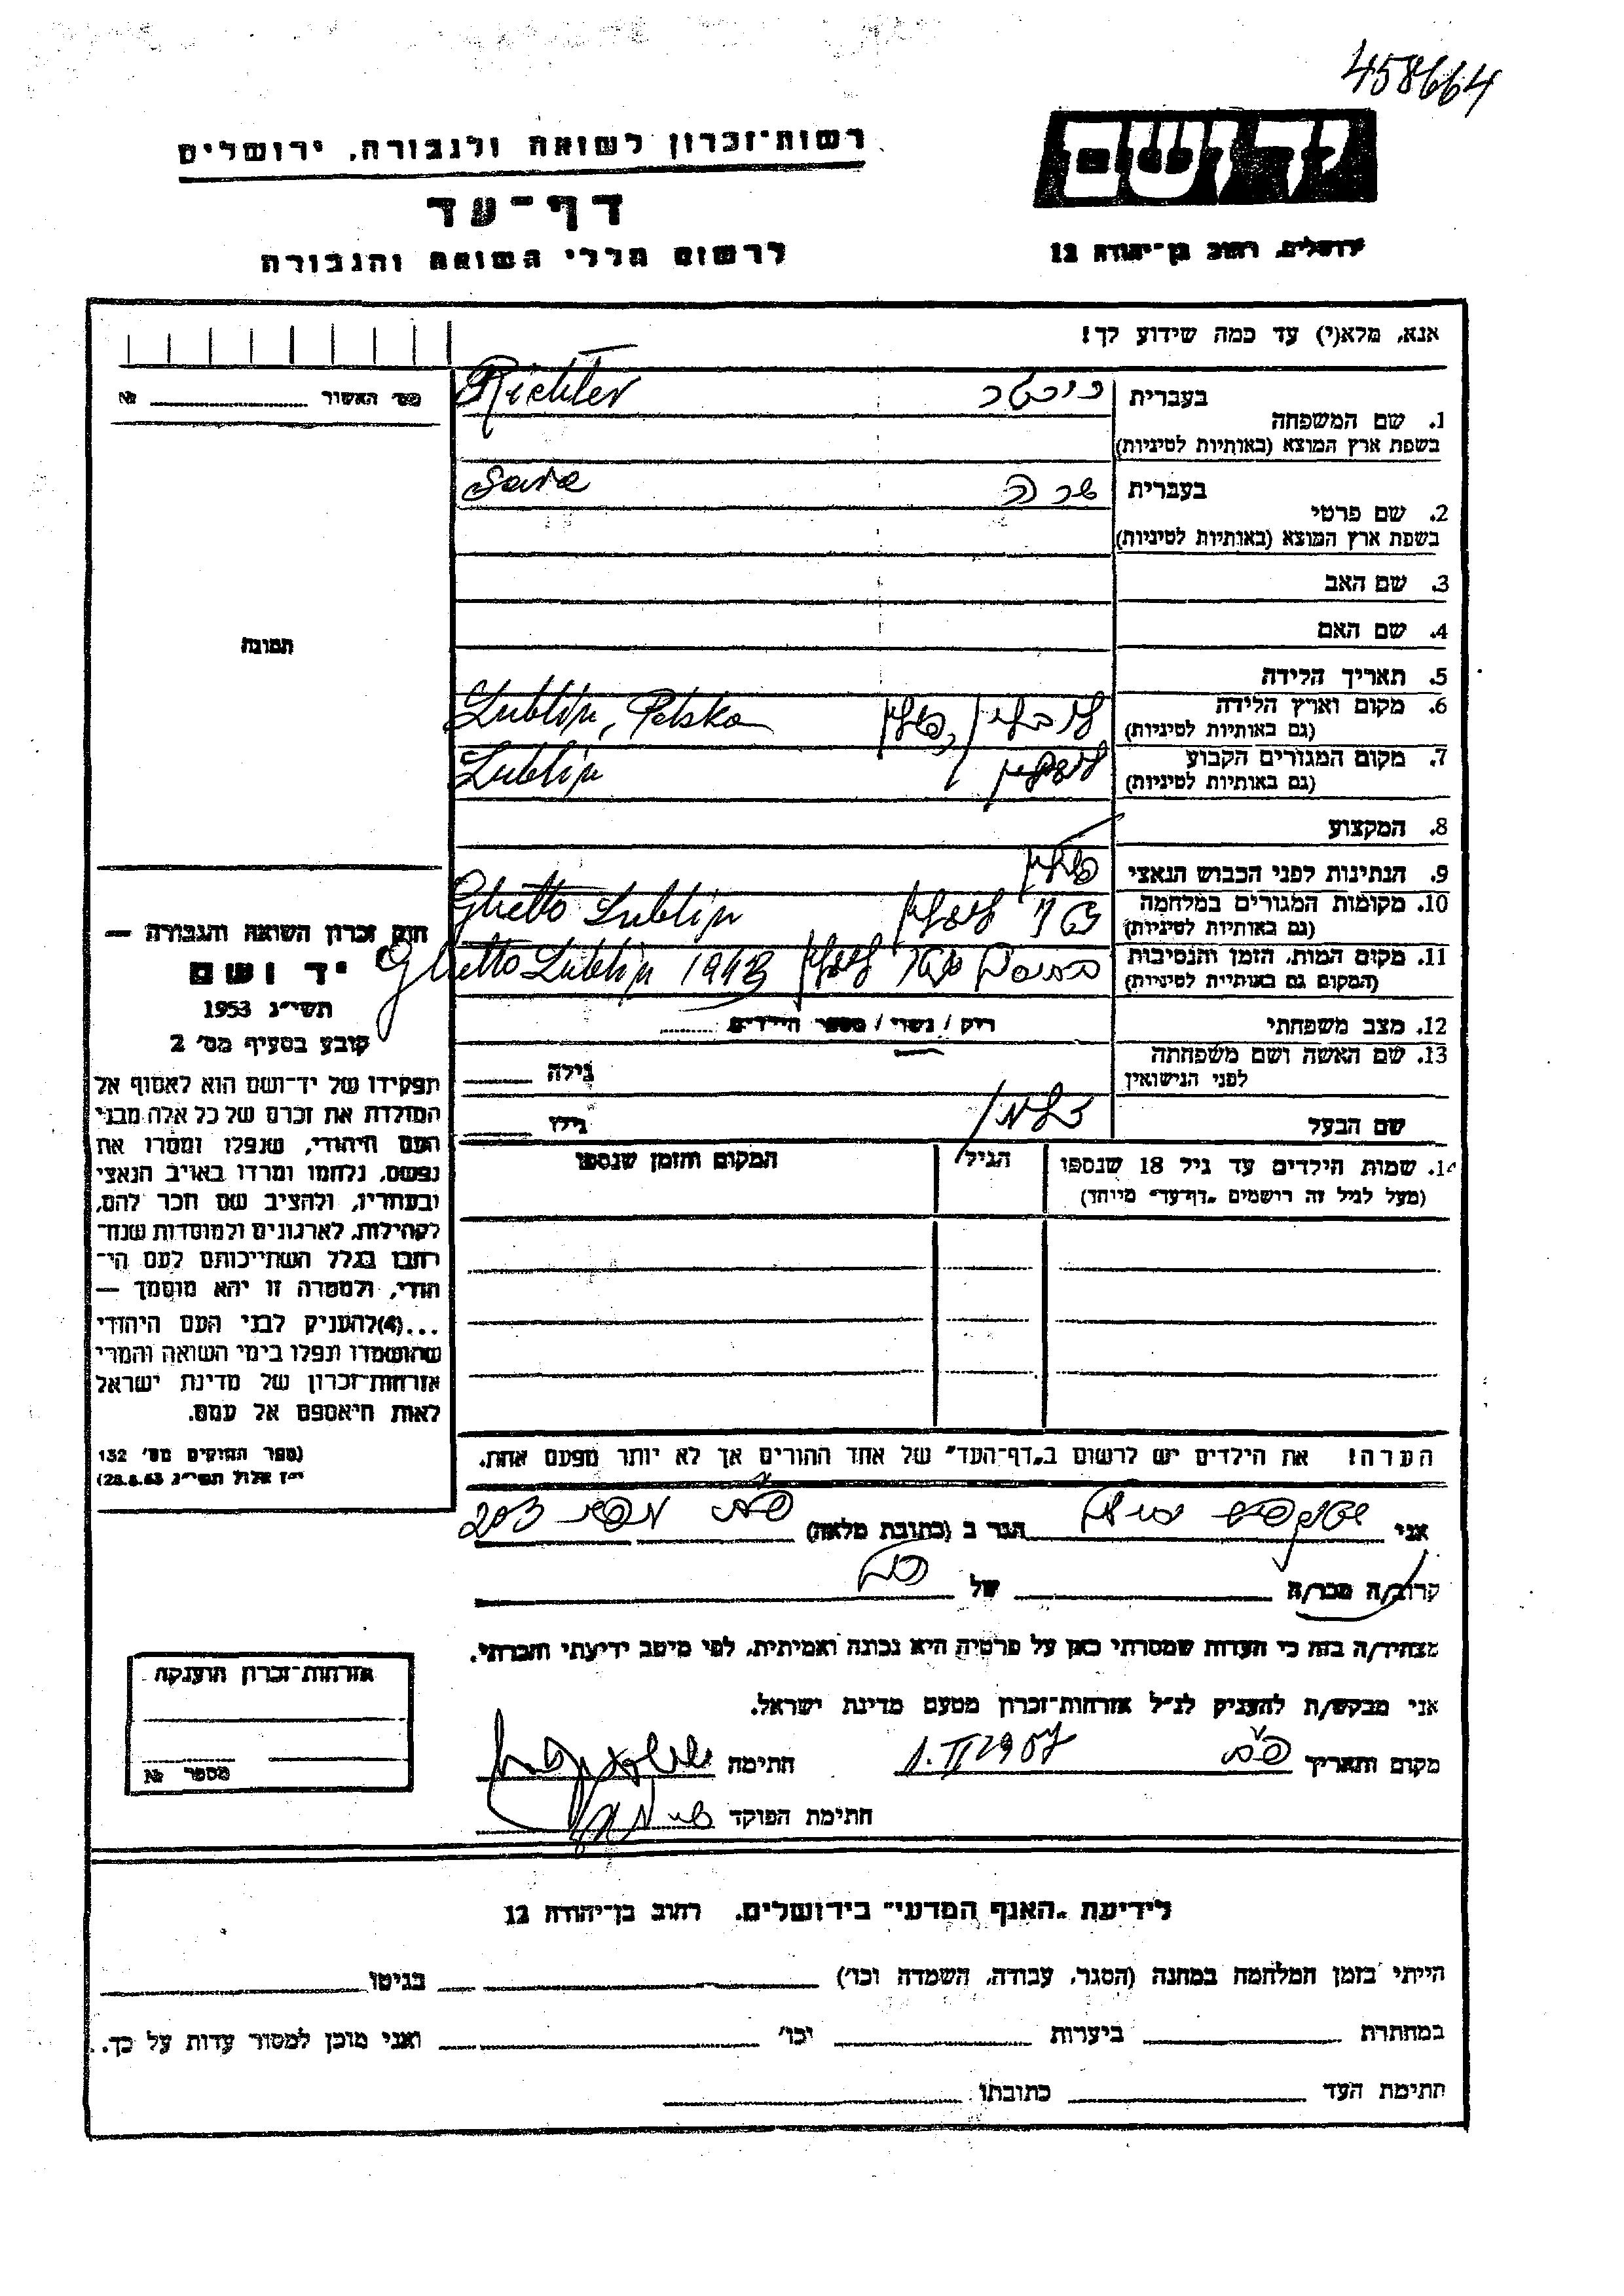 458664
רשות־זכרון לשואה ולגבורה, ירושלים
יד ושם
דף־עד
לרשום חללי השואה והגבורה
ירושלים, רחוב בן־יהודה 12
אנא, מלא(י) עד כמה שידוע לך!
מס׳ האשור № 
1. שם המשפחה
בעברית ריכטר
בשפת ארץ המוצא (באותיות לטיניות) Richter
2. שם פרטי
בעברית שרה
בשפת ארץ המוצא (באותיות לטיניות) Sara
3. שם האב
4. שם האם
תמונה
5. תאריך הלידה
6. מקום וארץ הלידה לובלין, פולין Lublin, Polska
(גם באותיות לטיניות)
7. מקום המגורים הקבוע לובלין Lublin
(גם באותיות לטיניות)
8. המקצוע
9. הנתינות לפני הכבוש הנאצי פולין
10. מקומות המגורים במלחמה לובלין Ghetto Lublin
(גם באותיות לטיניות)
11. מקום המות, הזמן והנסיבות לובלין Ghetto Lublin 1943
(המקום גם באותיית לטיניות)
12. מצב משפחתי רוק / נשוי / מספר הילדים
13. שם האשה ושם משפחתה גילה
לפני הנישואין
שם הבעל גילו
14. שמות הילדים עד גיל 18 שנספו הגיל המקום והזמן שנספו
(מעל לגיל זה רושמים "דף־עד" מיוחד)
הערה! את הילדים יש לרשום ב"דף־העד" של אחד ההורים אך לא יותר מפעם אחת.
חוק זכרון השואה והגבורה —
יד ושם
תשי״ג 1953
קובע בסעיף מס׳ 2
תפקידו של יד־ושם הוא לאסוף אל
המולדת את זכרם של כל אלה מבני
העם היהודי, שנפלו ומסרו את
נפשם, נלחמו ומרדו באויב הנאצי
ובעוזריו, ולהציב שם וזכר להם,
לקהילות, לארגונים ולמוסדות שנח־
רבו בגלל השתייכותם לעם הי־
הודי, ולמטרה זו יהא מוסמך —
...(4)להעניק לבני העם היהודי
שהושמדו ונפלו בימי השואה והמרי
אזרחות־זכרון של מדינת ישראל
לאות היאספם אל עמם.
(ספר החוקים מס׳ 132
י״ז אלול תשי״ג 28.8.53)
אני הגר ב (כתובת מלאה) 203
קרוב/ה מכר/ה של
מצהיר/ה בזה כי העדות שמסרתי כאן על פרטיה היא נכונה ואמיתית, לפי מיטב ידיעתי והכרתי.
אני מבקש/ת להעניק לנ״ל אזרחות־זכרון מטעם מדינת ישראל.
מקום ותאריך 1.II 1957 חתימה
חתימת הפוקד
אזרחות־זכרון הוענקה
מספר №
לידיעת "האגף המדעי" בירושלים. רחוב בן־יהודה 12
הייתי בזמן המלחמה במחנה (הסגר, עבודה, השמדה וכו׳) בגיטו
במחתרת ביערות וכו׳ ואני מוכן למסור עדות על כך.
חתימת העד כתובתו